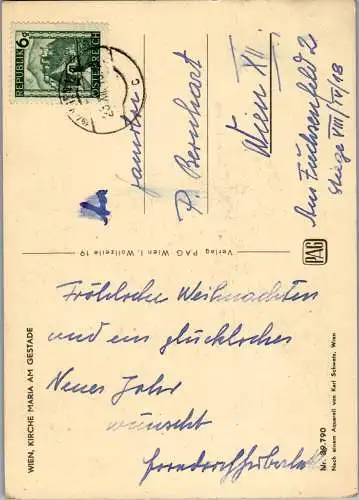 REPUBLIK
ÖSTERREICH
6g
Familie
P. Bernhart
Wien XII.
Am Fuchsenfeld 2
Stiege VIII/IV/18
Verlag PAG Wien I. Wollzeile 19
PAG
Fröhliche Weihnachten
und ein glückliches
Neues Jahr
wünscht
WIEN, KIRCHE MARIA AM GESTADE
Nr. 39.790
Nach einem Aquarell von Karl Schwetz, Wien